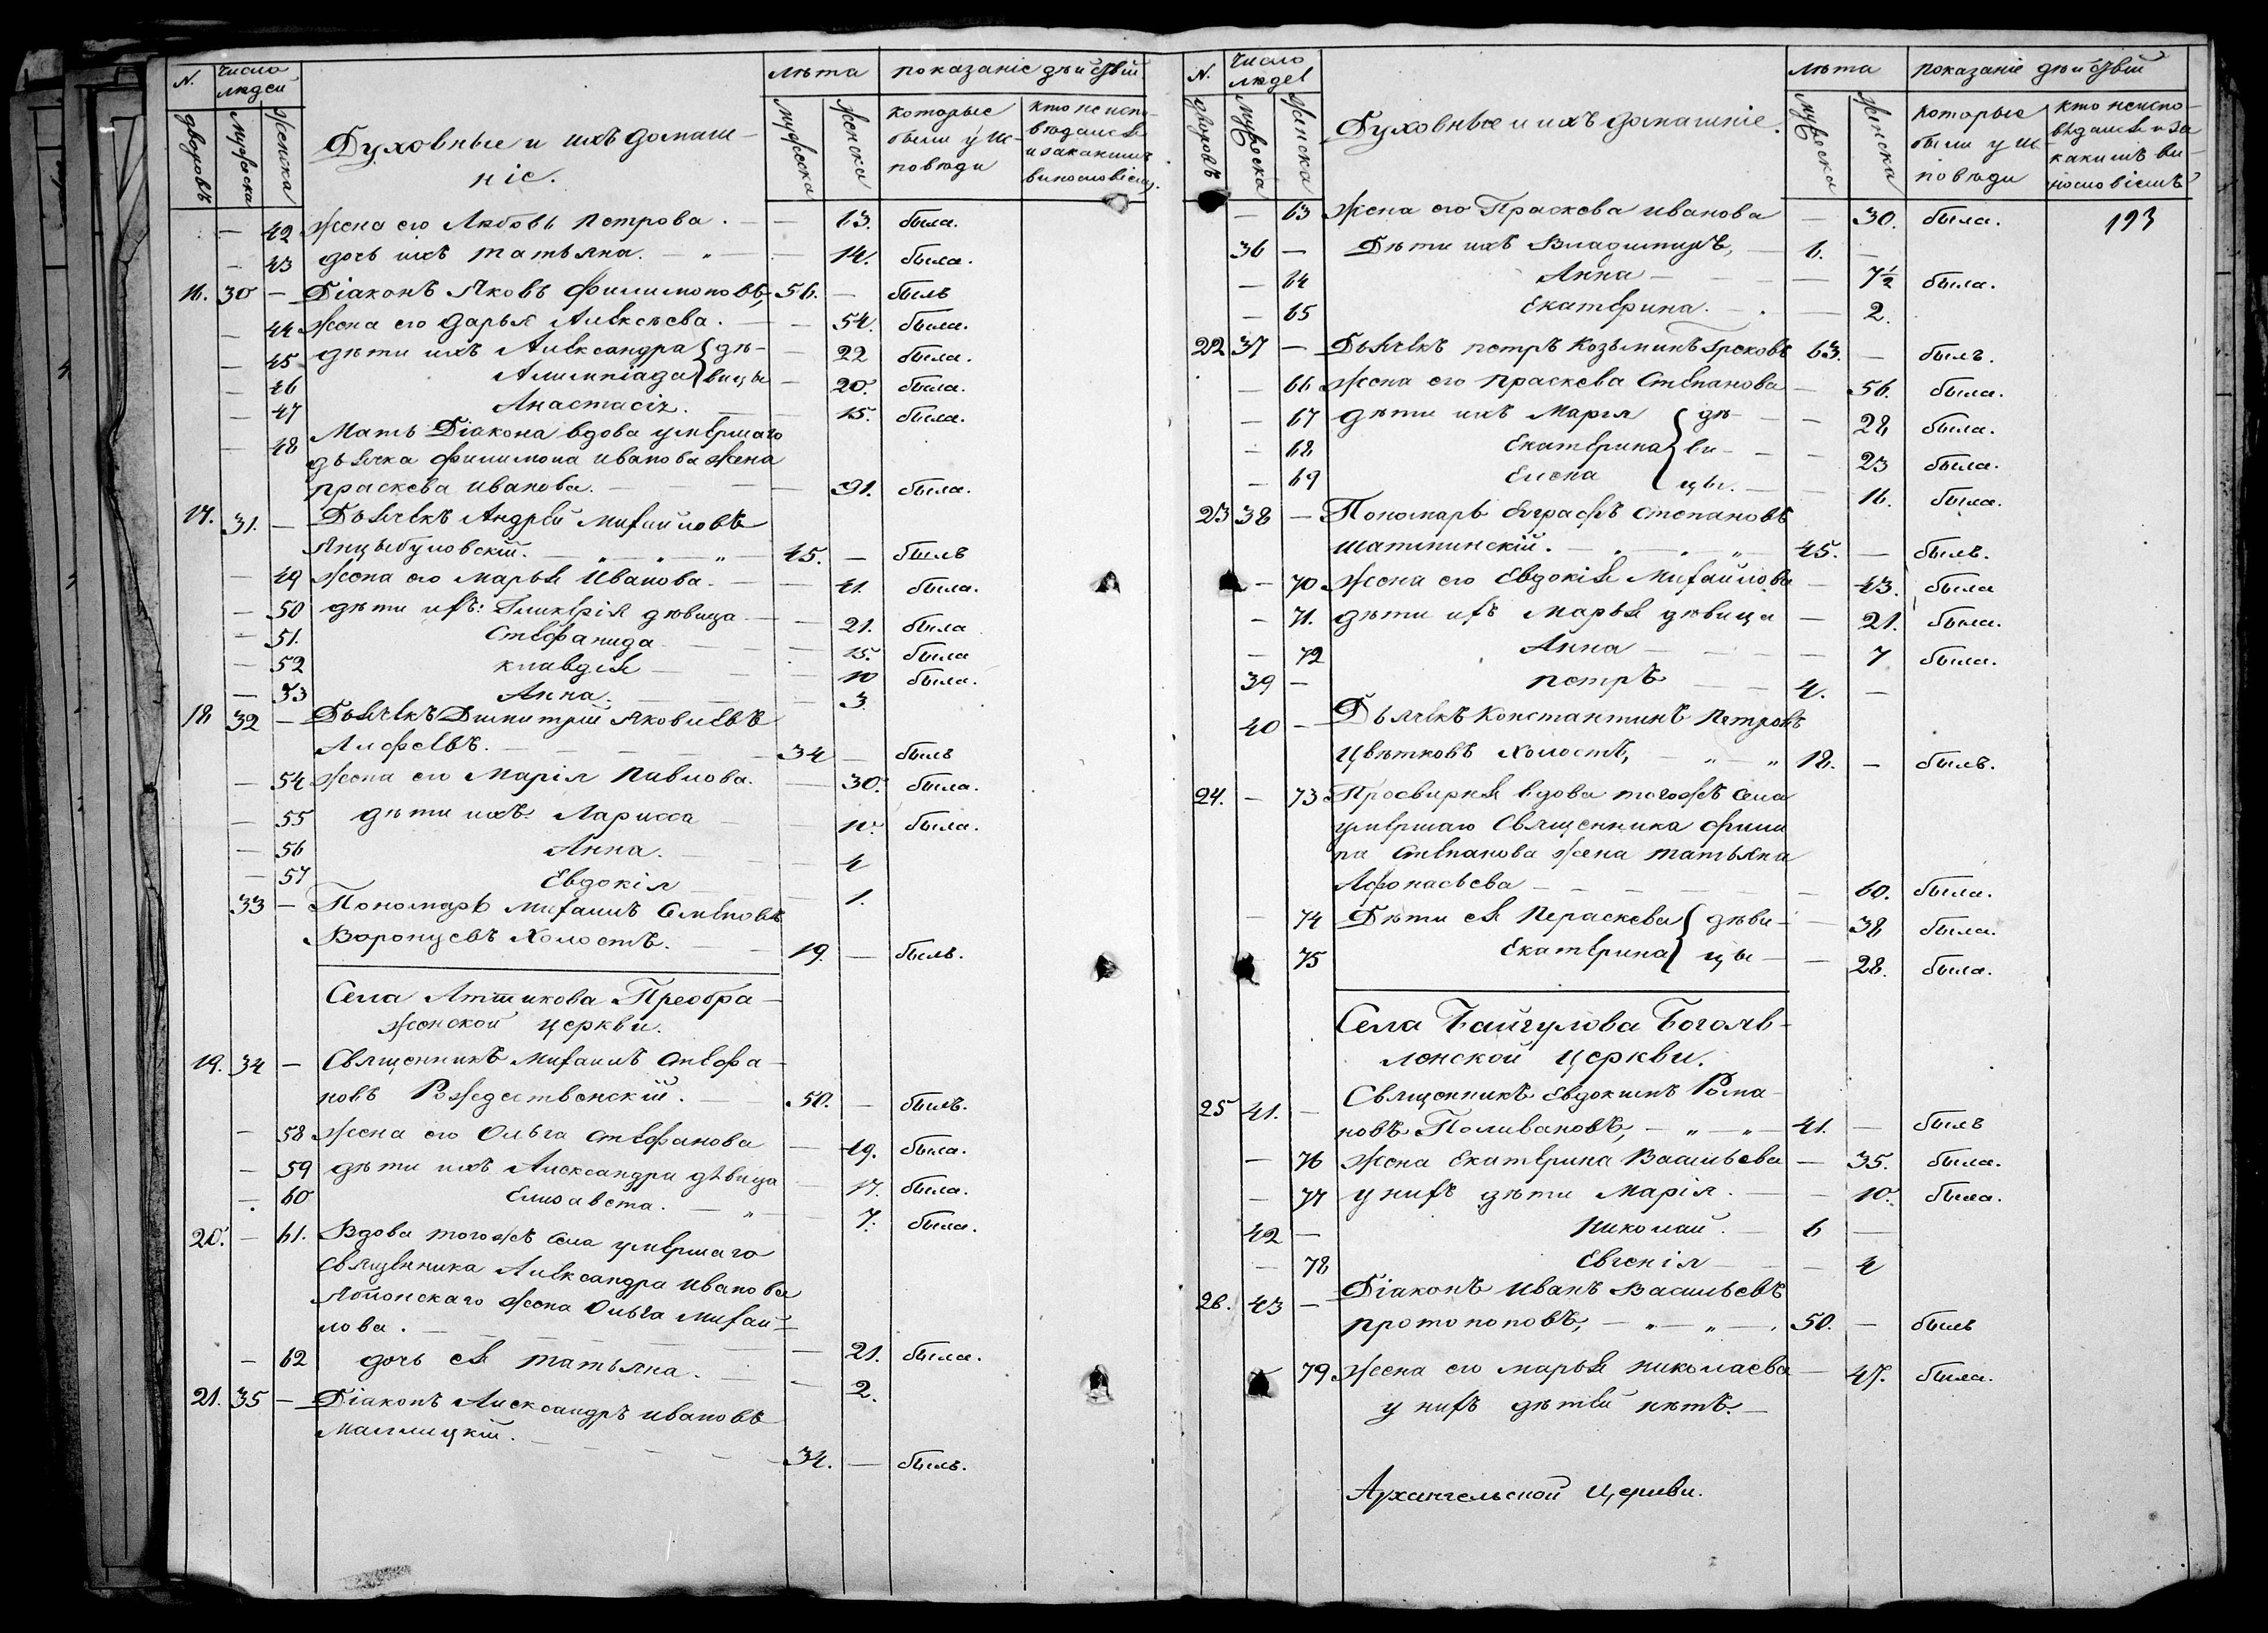 N. Число людей лѣта показаніе дѣйствій
дворовъ мужеска женска Духовные и ихъ домаш-
ніе. мужеска женска которые были у ис-повѣди кто не испо-вѣдался и за какимъ винословіемъ.
— 42 жена его Любовь Петрова. — — 63. была.
— 43 дочь ихъ Татьяна. — „ — — 14. была.
16. 30 — Діаконъ Яковъ Филимоновъ, 56. — былъ
— 44 жена его Дарья Алексѣева. — — 54. была.
— 45 дѣти ихъ Александра дѣ- — 22 была.
— 46 Алимпіада вицы — 20. была.
— 47 Анастасія. — 15. была.
— 48 Мать Діакона вдова умершаго
дьячка Филимона Иванова жена
Праскева Иванова. — — — 91. была.
17. 31. — Дьячекъ Андрей Михайловъ
Янцыбуловскій. — „ — „ — „ — 45. — былъ
— 49 жена его Марья Иванова. — — 41. была.
— 50 дѣти ихъ: Гликерія дѣвица — — 21. была
— 51. Стефанида — — 15. была
— 52 Клавдія — — 10 была.
— 53 Анна. — — 3.
18 32 — Дьячекъ Димитрій Яковлевъ
Алфеевъ. — — — 34 — былъ
— 54 жена его Марія Павлова. — 30. была.
— 55 дѣти ихъ Ларисса — — 10. была.
— 56 Анна. — — 4
— 57 Евдокія — — 1.
33 — Пономарь Михаилъ Семеновъ
Воронцевъ Холостъ. — — 19. — былъ.
Села Аттикова Преобра-
женской церкви.
19. 34 — Священникъ Михаилъ Стефа-
новъ Рождественскій. — 50. — былъ.
— 58 жена его Ольга Стефанова — 49. была.
— 59 дѣти ихъ Александра дѣвица — 17. была.
— 60 Елисавета. — „ — — 7. была.
20. — 61. Вдова тогожъ села умершаго
священника Александра Иванова
Яблонскаго жена Ольга Михай-
лова. — — — — 21. была.
— 62 дочь ея Татьяна. — — 2.
21. 35 — Діаконъ Александръ Ивановъ
Маллицкій. — — — 34. — былъ.
N. Число людей лѣта показаніе дѣйствій
дворовъ мужеска женска Духовные и ихъ домашніе. мужеска женска которые были у ис-повѣди кто неиспо-вѣдался и за какимъ ви-нословіемъ
— 63 жена его Праскева Иванова — 30. была. 193
36 — Дѣти ихъ Владимиръ, — 6. —
— 64 Анна — — 7½ была.
— 65 Екатерина. — . — 2.
22 37 — Дьячекъ Петръ Козьминъ Грековъ 63. — былъ.
— 66 жена его Праскева Степанова — 56. была.
— 67 дѣти ихъ Марія дѣ- — 28 была.
— 68 Екатерина ви- — 23 была.
— 69 Елена цы. — — 16. была.
23 38 — Пономарь Евграфъ Степановъ
Шатминскій. — . — . — „ — 45. — былъ.
— 70 жена его Евдокія Михайлова — 43. была
— 71. дѣти ихъ Марья дѣвица — 21. была.
— 72 Анна — — 7 была.
39 — Петръ — 4. —
40 — Дьячекъ Константинъ Петровъ
Цвѣтковъ Холостъ, — „ — „ 18. — былъ.
24. — 73 Просвирня вдова тогожъ села
умершаго Священника Фили
па Степанова жена Татьяна
Афонасьева — — — 60. была.
— 74 Дѣти ея Пераскева дѣви- — 38 была.
— 75 Екатерина цы — — 28. была.
Села Байгулова Богояв-
ленской церкви.
25 41. — Священникъ Евдокимъ Рома-
новъ Поливановъ, — „ — „ — 41. — былъ
— 76 жена Екатерина Васильева — 35. была.
— 77 у нихъ дѣти Марія. — — 10. была.
42 — Николай. — 6 —
— 78 Евгенія — — 4
26. 43 — Діаконъ Иванъ Васильевъ
Протопоповъ, — „ — „ — . 50. — былъ
79 жена его Марья Николаева — 47. была.
у нихъ дѣтей нѣтъ. —
Архангельской Церкви.